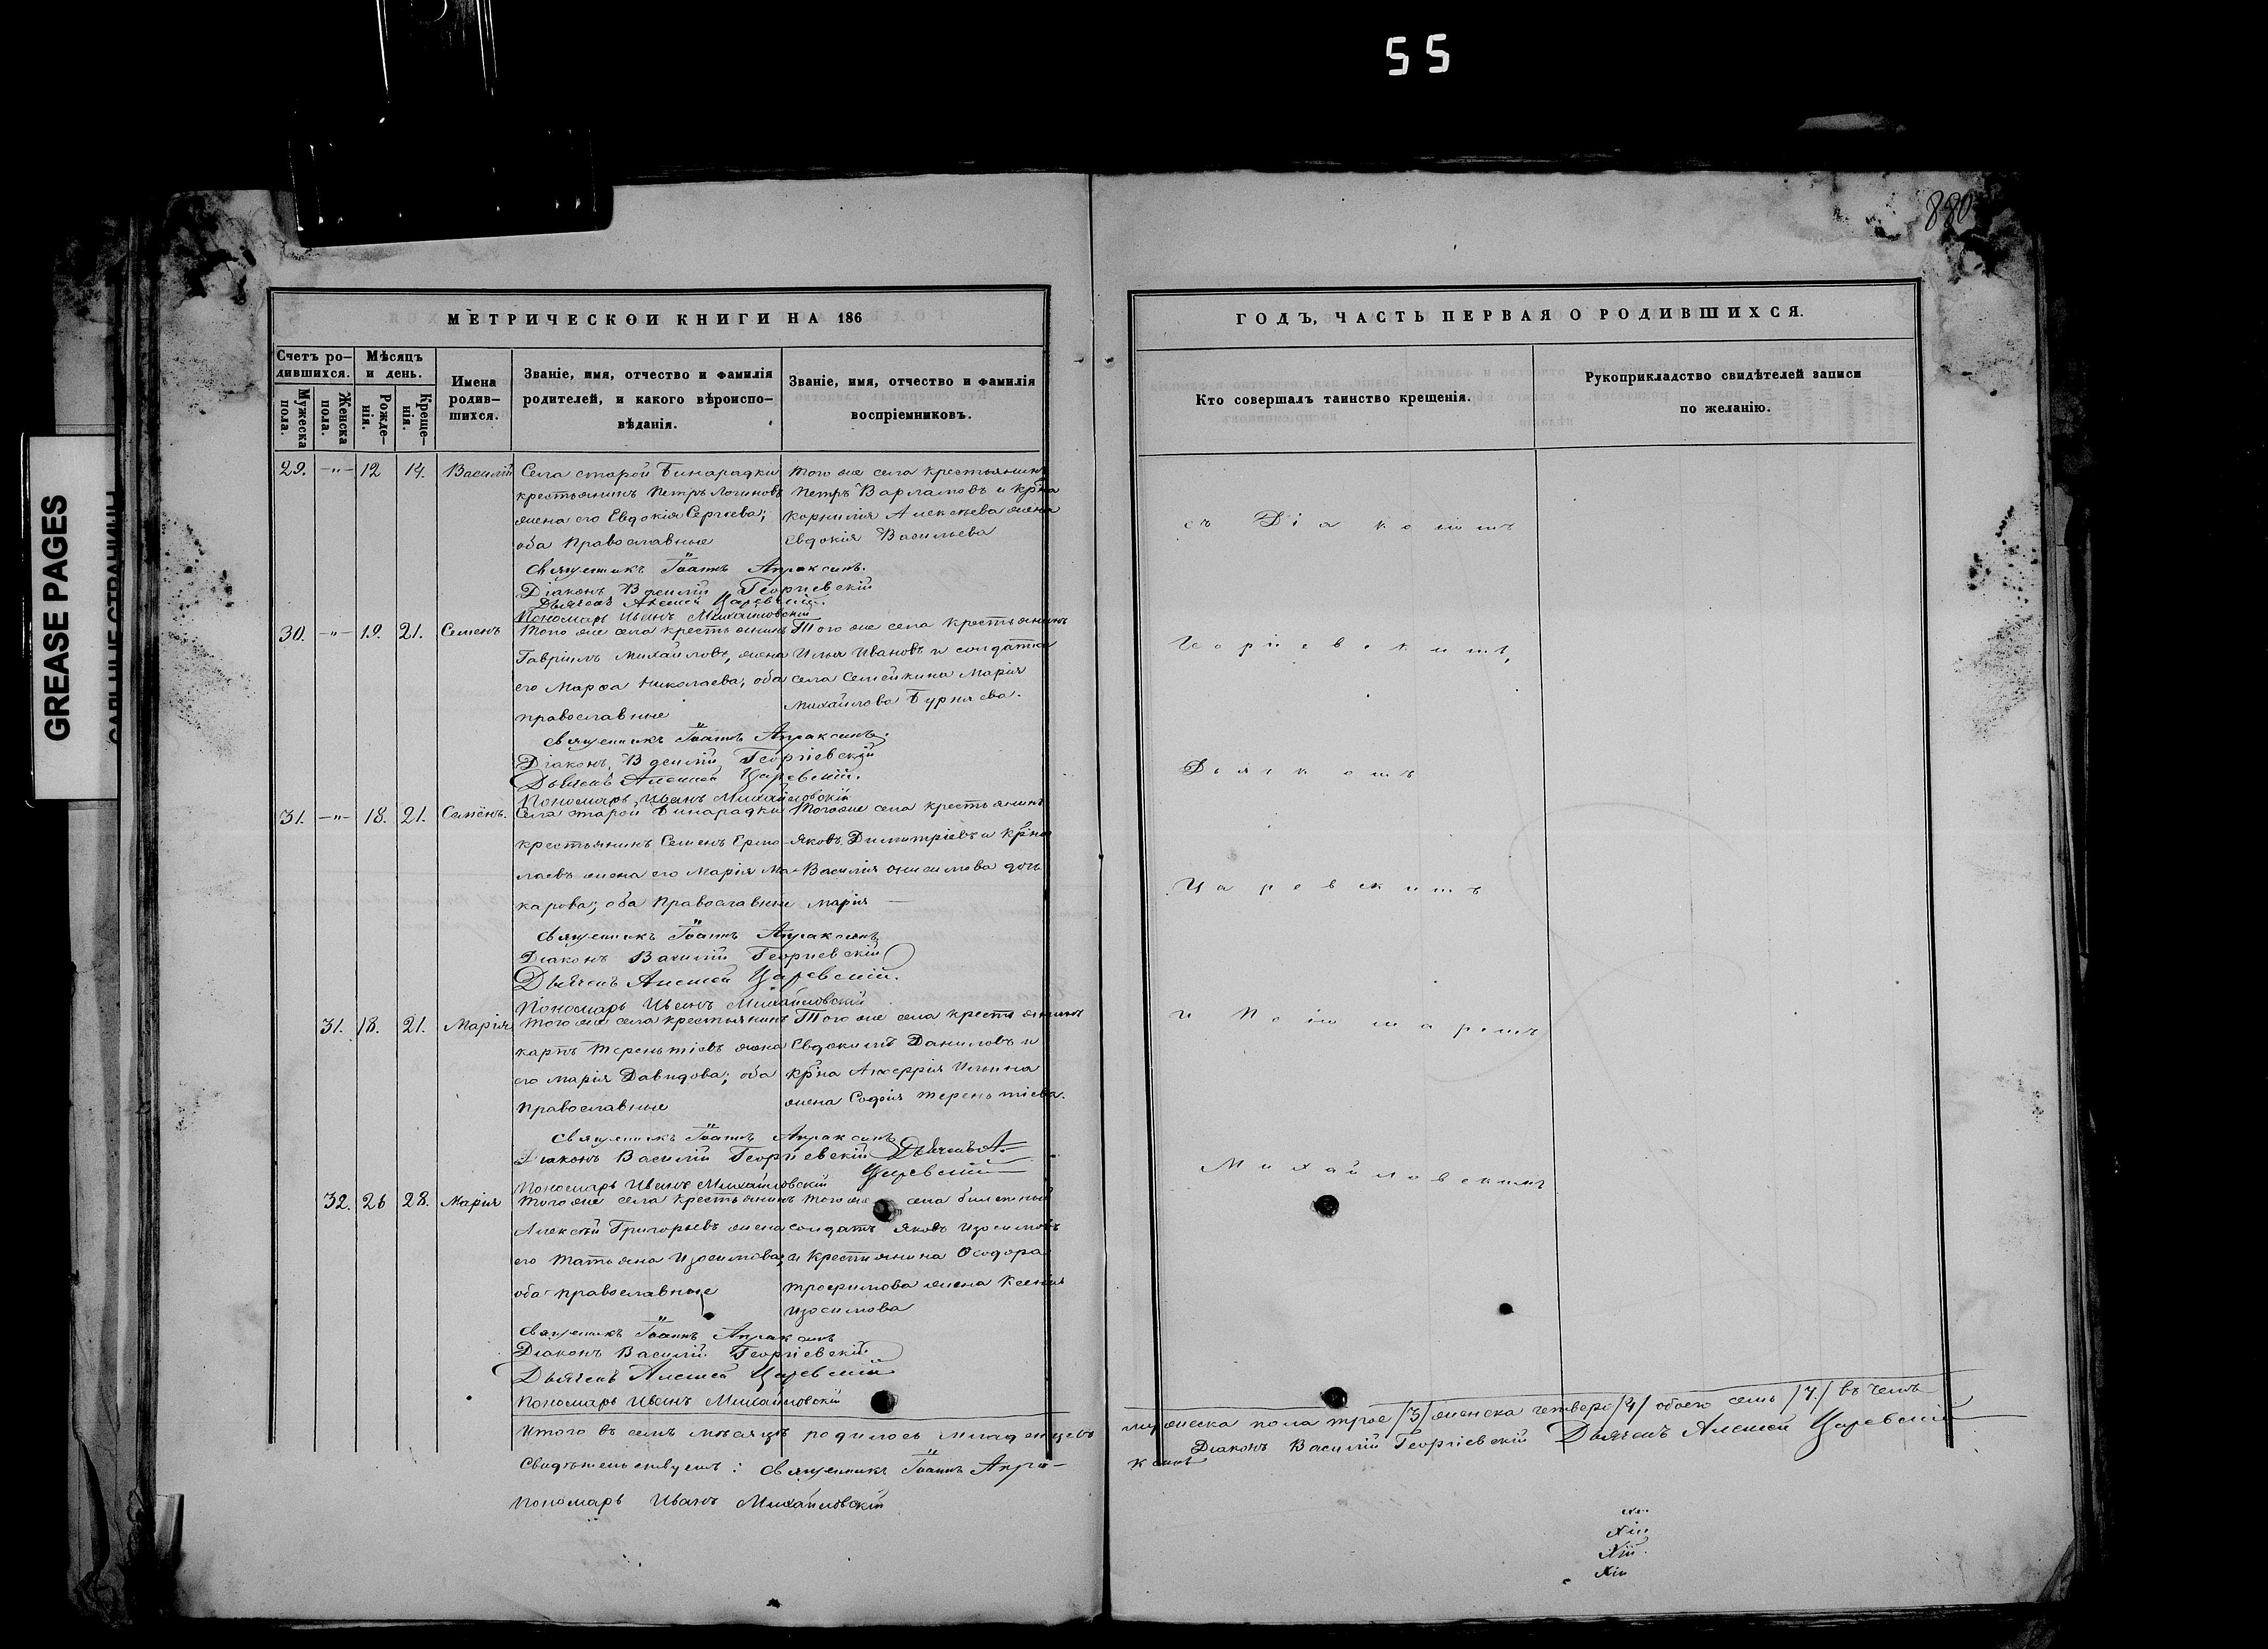 55
880
GREASE PAGES
МЕТРИЧЕСКОЙ КНИГИ НА 186
Счетъ ро-
дившихся.
Мужеска
пола.
Женска
пола.
Мѣсяцъ
и день.
Рожде-
нія.
Креще-
нія.
Имена
родив-
шихся.
Званіе, имя, отчество и фамилія
родителей, и какого вѣроиспо-
вѣданія.
Званіе, имя, отчество и фамилія
воспріемниковъ.
29. -"- 12 14. Василій Села старой Бинарадки
крестьянинъ Петръ Логиновъ
жена его Евдокія Сергѣева;
оба Православные
того же села крестьянинъ
Петръ Варламовъ и кр̃на
Корнилія Алексѣева жена
Евдокія Васильева
Священникъ Іоаннъ Апраксинъ.
Діаконъ Василій Георгіевскій
Дьячекъ Алексей Царевскій.
Пономарь Иванъ Михайловскій
30. -"- 19. 21. Семенъ Того же села крестьянинъ
Гавріилъ Михайловъ, жена
его Марѳа Николаева; оба
православные
Того же села крестьянинъ
Илья Ивановъ и солдатка
села Семейкина Марія
Михайлова Бурняева.
Священникъ Іоаннъ Апраксинъ.
Діаконъ Василій Георгіевскій
Дьячекъ Алексей Царевскій.
Пономарь Иванъ Михайловскій
31. -"- 18. 21. Семёнъ. Села старой Бинарадки
крестьянинъ Семенъ Ермо-
лаевъ жена его Марія Ма-
карова; оба Православные
Того же села крестьянинъ
Яковъ Димитріевъ и кр̃на
Василія Онисимова дочь
Марія
Священникъ Іоаннъ Апраксинъ
Діаконъ Василій Георгіевскій
Дьячекъ Алексей Царевскій.
Пономарь Иванъ Михайловскій
31. 18. 21. Марія Того же села крестьянинъ
Карпъ Терентіевъ жена
его Марія Давидова; оба
православные
Того же села крестьянинъ
Евдокимъ Даниловъ и
кр̃на Ильина
жена Софія Терентіева.
Священникъ Іоаннъ Апраксинъ
Діаконъ Василій Георгіевскій Дьячекъ А.
Царевскій
Пономарь Иванъ Михайловскій
32. 26 28. Марія Того же села крестьянинъ
Алексѣй Григорьевъ жена
его Татьяна Изосимова;
оба православные
того же села билетный
солдатъ Яковъ Изосимовъ
и крестьянина Ѳеодора
Трофимова жена Ксенія
Изосимова
Священникъ Іоаннъ Апраксинъ
Діаконъ Василій Георгіевскій
Дьячекъ Алексей Царевскій
Пономарь Иванъ Михайловскій
Итого въ семъ мѣсяцѣ родилось младенцевъ
Свидѣтельствуемъ: Священникъ Іоаннъ Апра-
Пономарь Иванъ Михайловскій
ГОДЪ, ЧАСТЬ ПЕРВАЯ О РОДИВШИХСЯ.
Кто совершалъ таинство крещенія.
Рукоприкладство свидѣтелей записи
по желанію.
съ Діакономъ
Георгіевскимъ,
Дьячкомъ
Царевскимъ
и Пономаремъ
Михайловскимъ
мужеска пола трое /3/ женска четверо /4/ обоего семь /7./ въ чемъ
Діаконъ Василій Георгіевскій Дьячекъ Алексей Царевскій
ксинъ